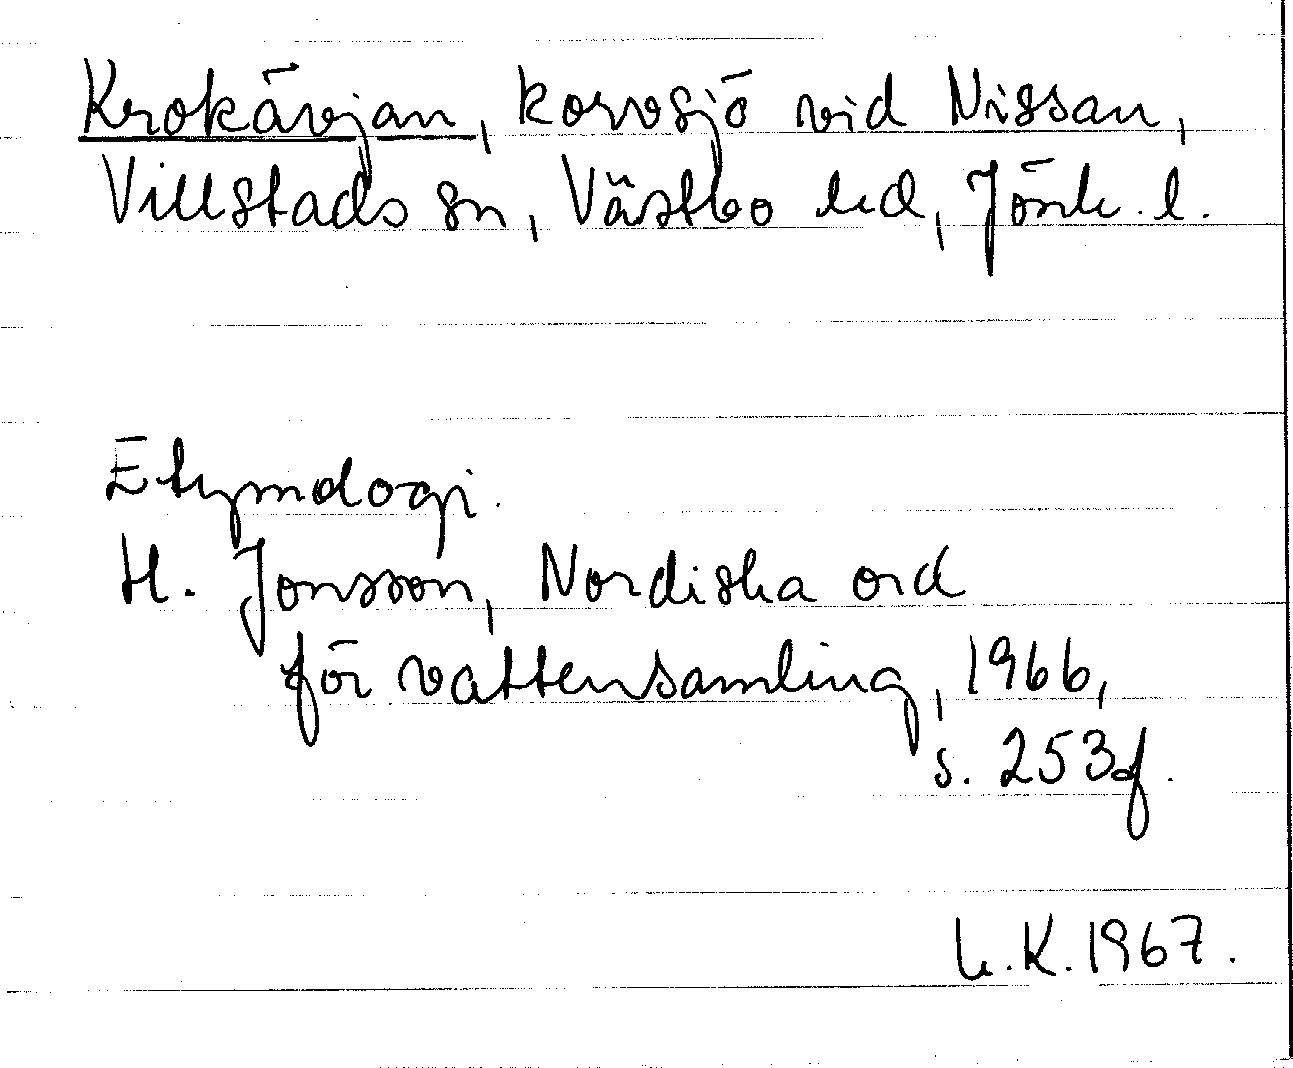 Krokävjan, korvsjö vid Nissan,
Villstads sn, Västbo hd, Jönk. l.
Etymologi.
H. Jonsson, Nordiska ord
för vattensamling, 1966,
s. 253f.
L.K. 1967.